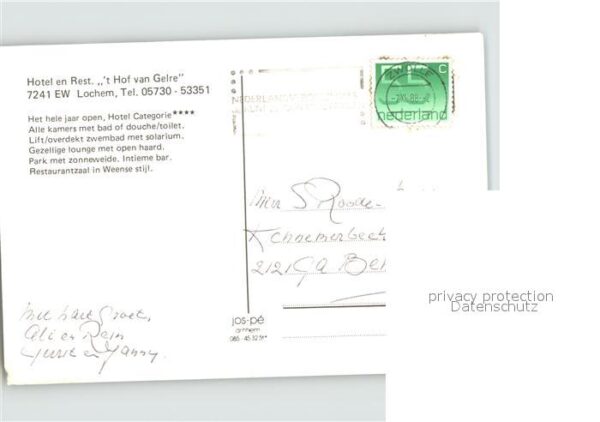 Hotel en Rest. ,,'t Hof van Gelre"
7241 EW Lochem, Tel. 05730 - 53351
Het hele jaar open, Hotel Categorie****
Alle kamers met bad of douche/toilet.
Lift/overdekt zwembad met solarium.
Gezellige lounge met open haard.
Park met zonneweide. Intieme bar.
Restaurantzaal in Weense stijl.
ZWOLLE
c
nederland
Mw S Roode-
2121 GA Ben
met hart. Groet,
Ali en Rein
jos-pé
arnhem
privacy protection
Datenschutz